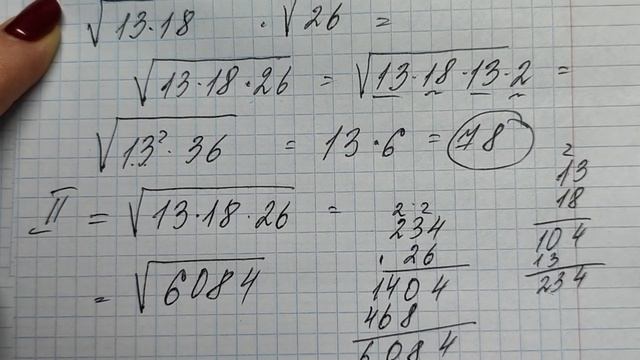 √13·18 · √26 =
√13·18·26 = √13·18·13·2 =
√13²·36 = 13·6 = 78
II = √13·18·26 =
= √6084
2 2
234
· 26
1404
468
6084
2
13
18
104
13
234